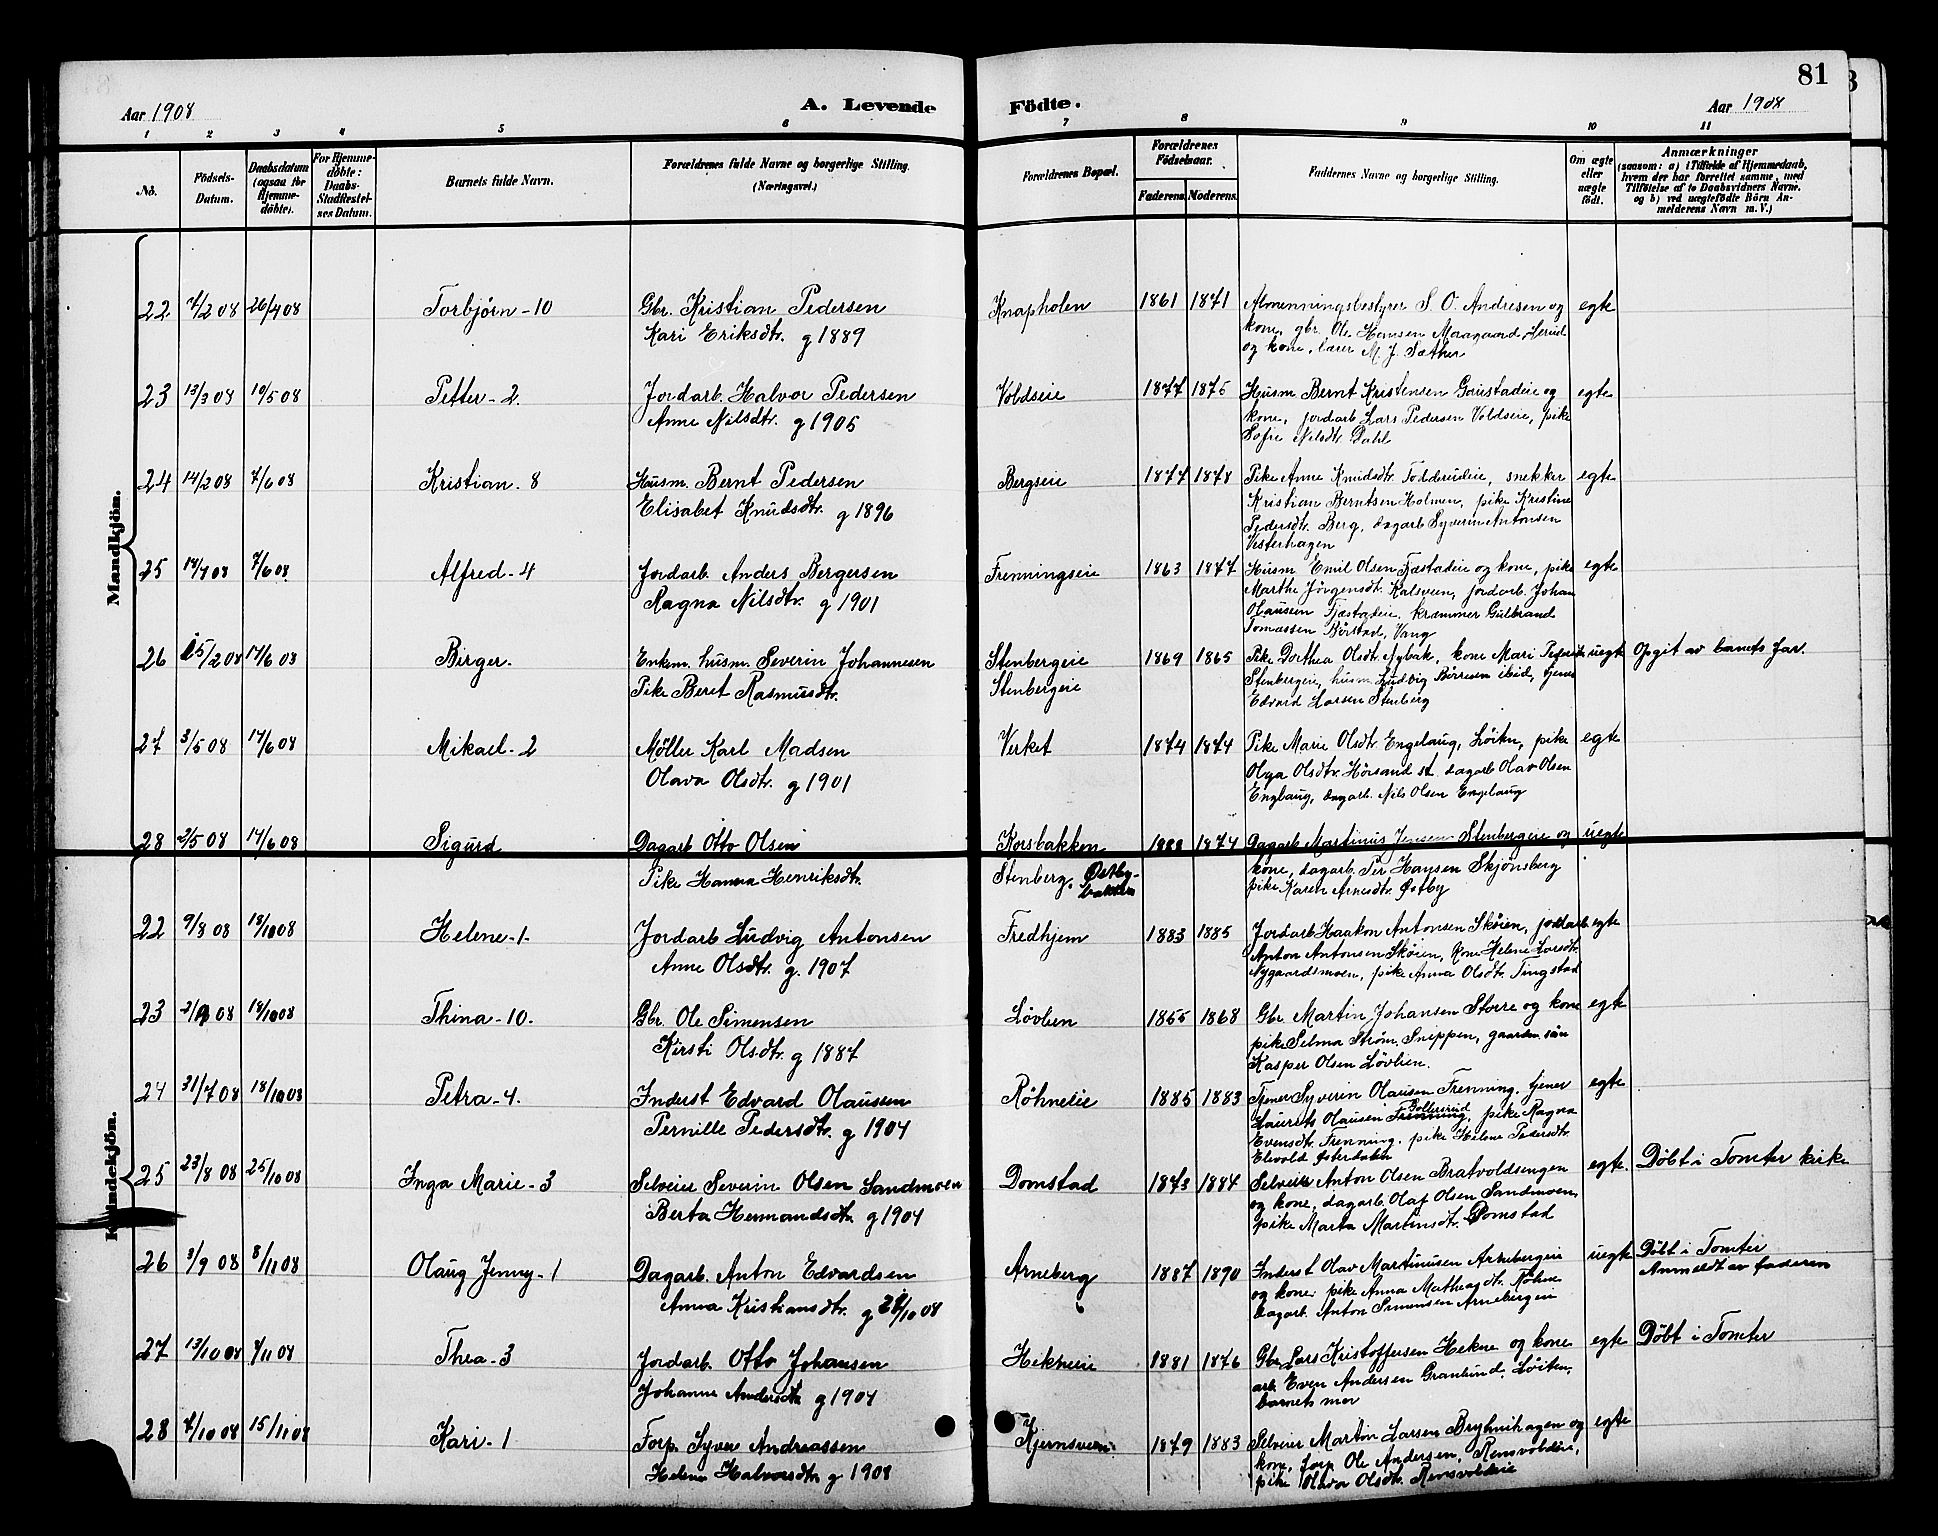 81
Aar 1908
A. Levende Födte.
Aar 1908
1 2 3 4 5 6 7 8 9 10 11
No.
Födsels-Datum.
Daabsdatum (ogsaa for Hjemme-döbte).
For Hjemme-döbte: Daabs-Stadfestel-ses Datum.
Barnets fulde Navn.
Forældrenes fulde Navne og borgerlige Stilling. (Næringsvei.)
Forældrenes Bopæl.
Forældrenes Födselsaar.
Faderens. Moderens.
Faddernes Navne og borgerlige Stilling.
Om ægte eller uægte födt.
Anmærkninger
(saasom: a) i Tilfælde af Hjemmedaab,
hvem der har forrettet samme, med
Tilföielse af to Daabsvidners Navne.
og b) ved uægtefödte Börn An-
melderens Navn m. V.)
Mandkjön.
22 7/2 08 26/4 08 Torbjørn - 10 Gbr. Kristian Pedersen Knapholen 1861 1871 Almenningsbestyrer S. O. Andresen og egte
Kari Eriksdtr. g 1889 kone, gbr. Ole Hansen Moragaard, Lerud
og kone, lærer M. J. Sæther
23 13/3 08 10/5 08 Petter - 2. Jordarb. Halvor Pedersen Voldseie 1877 1875 Husm Bernt Kristensen Gaustadeie og egte
Anne Nilsdtr. g 1905 kone, jordarb Lars Pedersen Voldseie, pike
Sofie Nilsdtr. Dahl
24 14/2 08 7/6 08 Kristian - 8 Husm. Bernt Pedersen Bergseie 1877 1878 Pike Anne Knudsdtr. Toldereideie, snekker egte
Elisabet Knudsdtr. g 1896 Kristian Berntsen Holmen, pike Kristine
Pedersdtr. Berg, dagarb Syverin Antonsen
Vesterhagen
25 14/4 08 7/6 08 Alfred - 4 Jordarb. Anders Bergersen Frenningseie 1863 1877 Husm. Emil Olsen Fjæstadeie og kone, pike egte
Ragna Nilsdtr. g 1901 Marthe Jörgensdtr. Kalsveen, jordarb. Johan
Olausen Fjæstadeie, kræmmer Gulbrand
Tomassen Börstad, Vang
26 25/2 08 14/6 08 Birger. Enkem. husm. Severin Johannesen Stenbergeie 1869 1865 Pike Dorthea Olsdtr. Nybak, kone Mari Pedersdtr uegte Opgit av barnets far.
Pike Beret Rasmusdtr. Stenbergeie Stenbergeie, husm. Ludvig Börresen ibid, tjener
Edvard Larsen Stenberg
27 3/5 08 14/6 08 Mikael - 2 Möller Karl Madsen Verket 1874 1874 Pike Marie Olsdtr. Engelaug, Löiten, pike egte
Olava Olsdtr. g 1901 Olga Olsdtr. Hörsand st. dagarb Olav Olsen
Englaug, dagarb. Nils Olsen Engelaug
28 2/5 08 14/6 08 Sigurd Dagarb Otto Olsen Korsbakken 1888 1874 Dagarb Martinus Jensen Stenbergeie og uegte
Pike Hanna Henriksdtr. Stenberg, Østby-bakken kone, dagarb. Per Hansen Skjönsberg
pike Karen Arnesdtr. Østby
Kvindekjön.
22 9/8 08 18/10 08 Helene - 1. Jordarb Ludvig Antonsen Fredhjem 1883 1885 Jordarb Haakon Antonsen Sköien, jordarb. egte
Anne Olsdtr. g. 1907 Anton Antonsen Sköien, Kone Helene Larsdtr.
Nygaardsmoen, pike Anna Olsdtr. Tingstad
23 2/9 08 18/10 08 Thina - 10. Gbr. Ole Simensen Lövlien 1855 1868 Gbr. Martin Johansen Storre og kone egte
Kirsti Olsdtr. g 1887 pike Selma Ström, Snippen, gaardm. sön
Kasper Olsen Lövlien.
24 31/7 08 18/10 08 Petra - 4. Inderst Edvard Olaussen Röhneeie 1885 1883 Tjener Syverin Olausen Frenning, tjener egte
Pernille Pedersdtr. g 1904 Laurits Olausen Frenning Bollerud, pike Ragna
Evensdtr. Frenning, pike Helene Pedersdtr.
Elvold Østerdalen
25 23/8 08 25/10 08 Inga Marie - 3 Selveier Severin Olsen Sandmoen Domstad 1873 1884 Selveier Anton Olsen Bratvoldsengen egte. Döbt i Tomter kirke
Berta Hermandsdtr. g 1904 og kone, dagarb. Olaf Olsen Sandmoen,
pike Marta Martinsdtr. Domstad
26 3/9 08 8/11 08 Olaug Jenny - 1 Dagarb. Anton Edvardsen Arneberg 1887 1890 Inderst Olav Martinusen Arnebergeie uegte Döbt i Tomter
Anna Kristiansdtr. g 24/10 08 og kone. pike Anna Matheasdtr. Röhne Anmeldt av faderen
dagarb. Anton Simensen Arnebergeie
27 13/10 08 8/11 08 Thea - 3 Jordarb. Otto Johansen Hekneeie 1881 1876 Gbr. Lars Kristoffersen Hekne og kone egte Döbt i Tomter
Johanne Andersdtr. g 1904 arb. Even Andersen Granlund, Löiten,
barnets mor
28 7/10 08 15/11 08 Kari - 1 Forp. Syver Andreassen Kjernsveen 1879 1883 Selveier Martin Larsen Bryhnihagen og egte
Helene Halvorsdtr. g 1908 kone, forp. Ole Andersen, Rensvoldeie,
pike Olava Olsdtr. Rensvoldeie